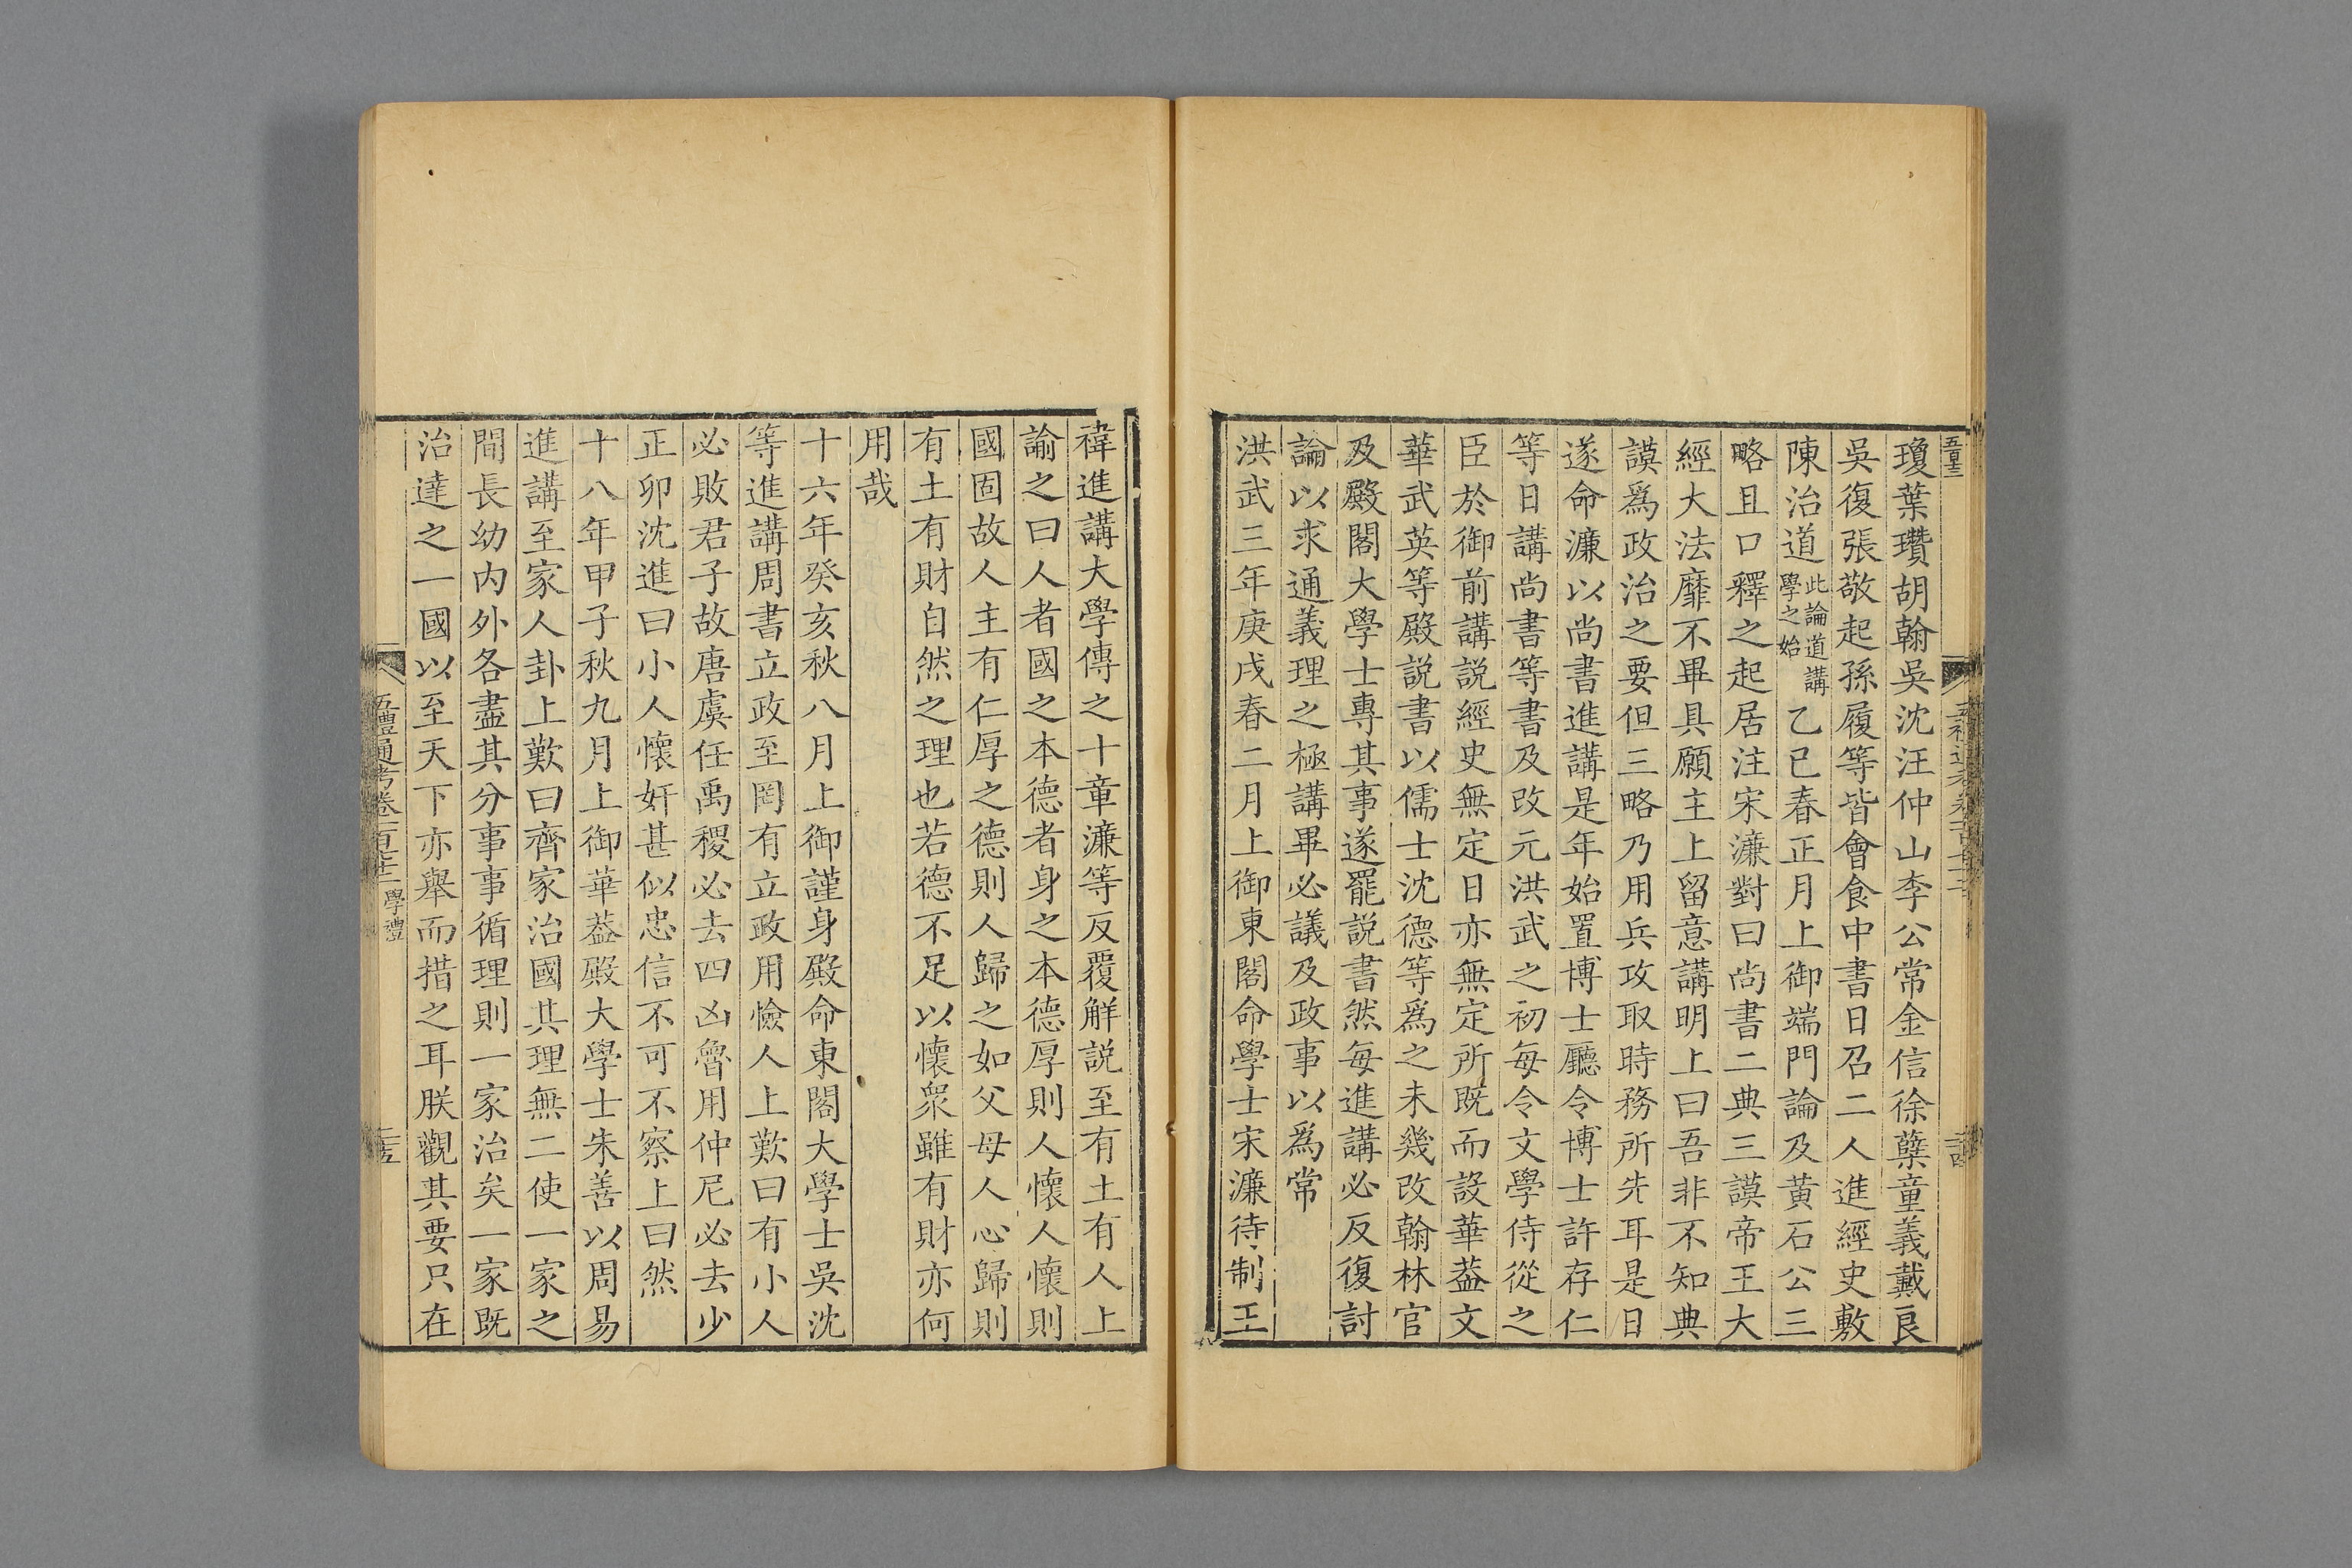 瓊葉瓚胡翰吳沈汪仲山李公常金信徐孽童義戴良
吳復張敬起孫履等皆會食中書日召二人進經史敷
陳治道此論道講學之始乙巳春正月上御端門論及黄石公三
略且口釋之起居注宋濂對曰尚書二典三謨帝王大
經大法靡不畢具願主上留意講明上曰吾非不知典
謨爲政治之要但三略乃用兵攻取時務所先耳是日
遂命濂以尚書進講是年始置博士廳令博士許存仁
等日講尚書等書及改元洪武之初每令文學侍從之
臣於御前講説經史無定日亦無定所既而設華葢文
華武英等殿説書以儒士沈德等爲之未幾改翰林官
及殿閣大學士專其事遂罷説書然每進講必反復討
論以求通義理之極講畢必議及政事以爲常
洪武三年庚戌春二月上御東閣命學士宋濂待制王
禕進講大學傳之十章濂等反覆解説至有土有人上
諭之曰人者國之本德者身之本德厚則人懷人懷則
國固故人主有仁厚之德則人歸之如父母人心歸則
有土有財自然之理也若德不足以懷衆雖有財亦何
用哉
十六年癸亥秋八月上御謹身殿命東閣大學士吳沈
等進講周書立政至罔有立政用憸人上歎曰有小人
必敗君子故唐虞任禹稷必去四凶魯用仲尼必去少
正卯沈進曰小人懷奸甚似忠信不可不察上曰然
十八年甲子秋九月上御華葢殿大學士朱善以周易
進講至家人卦上歎曰齊家治國其理無二使一家之
間長幼内外各盡其分事事循理則一家治矣一家既
治達之一國以至天下亦舉而措之耳朕觀其要只在
五禮通考卷一百七十三 學禮